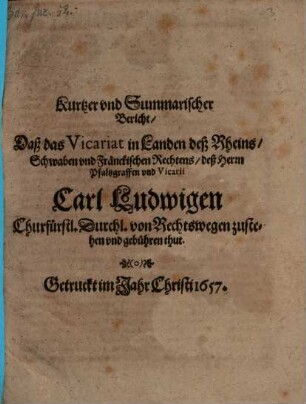 Kurtzer vnd Summarischer
Bericht/
Daß das Vicariat in Landen deß Rheins/
Schwaben vnd Fränckischen Rechtens/ deß Herrn
Pfaltzgraffen vnd Vicarii
Carl Ludwigen
Churfürstl. Durchl. von Rechtswegen zuste-
hen vnd gebühren thut.
Getruckt im Jahr Christi 1657.